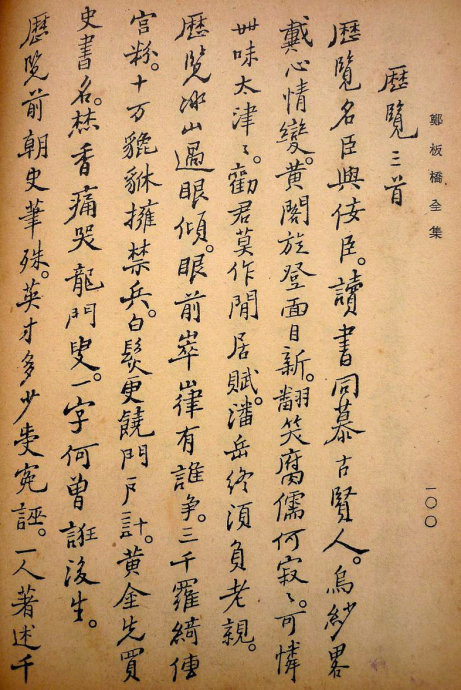 鄭板橋全集
一〇〇
歷覽三首
歷覽名臣與佞臣。讀書同慕古賢人。烏紗畧
戴心情變。黃閣旋登面目新。翻笑腐儒何寂〻。可憐
世味太津〻。勸君莫作閒居賦。潘岳終須負老親。
歷覽冰山過眼傾。眼前崒嵂有誰爭。三千羅綺傳
宮粉。十万貔貅擁禁兵。白髮更饒門戶計。黃金先買
史書名。焚香痛哭龍門叟。一字何曾誑後生。
歷覽前朝史筆殊。英才多少受冤誣。一人著述千